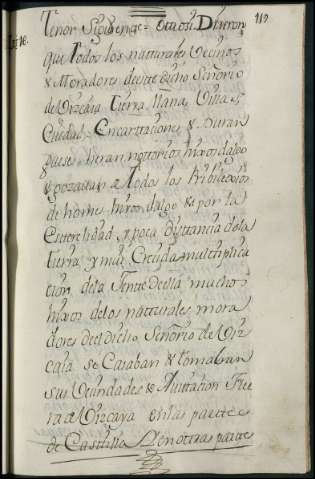 119
Ley 16.
Tenor Siguiente = Otrosi Dixeron
que Todos los natturales Vecinos
& Moradores de este dicho Señorio
de Vizcaia Tierra Llana Villas
Ciudad, Encarttaciones & Duran
guese, heran nottorios hixos dalgo
y gozauan de Todos los Pribilexios
de homes hixos dalgo & por la
Esterelidad y poca disttancia de la
tierra y mui Crecida multtiplica
cion de la Jente de ella muchos
hixos de los natturales mora
dores de el dicho Señorio de Viz
caia se Casaban & tomaban
sus Vecindades & Auitacion Fue
ra de Vizcaya en las partte
de Casttilla & en otras partte